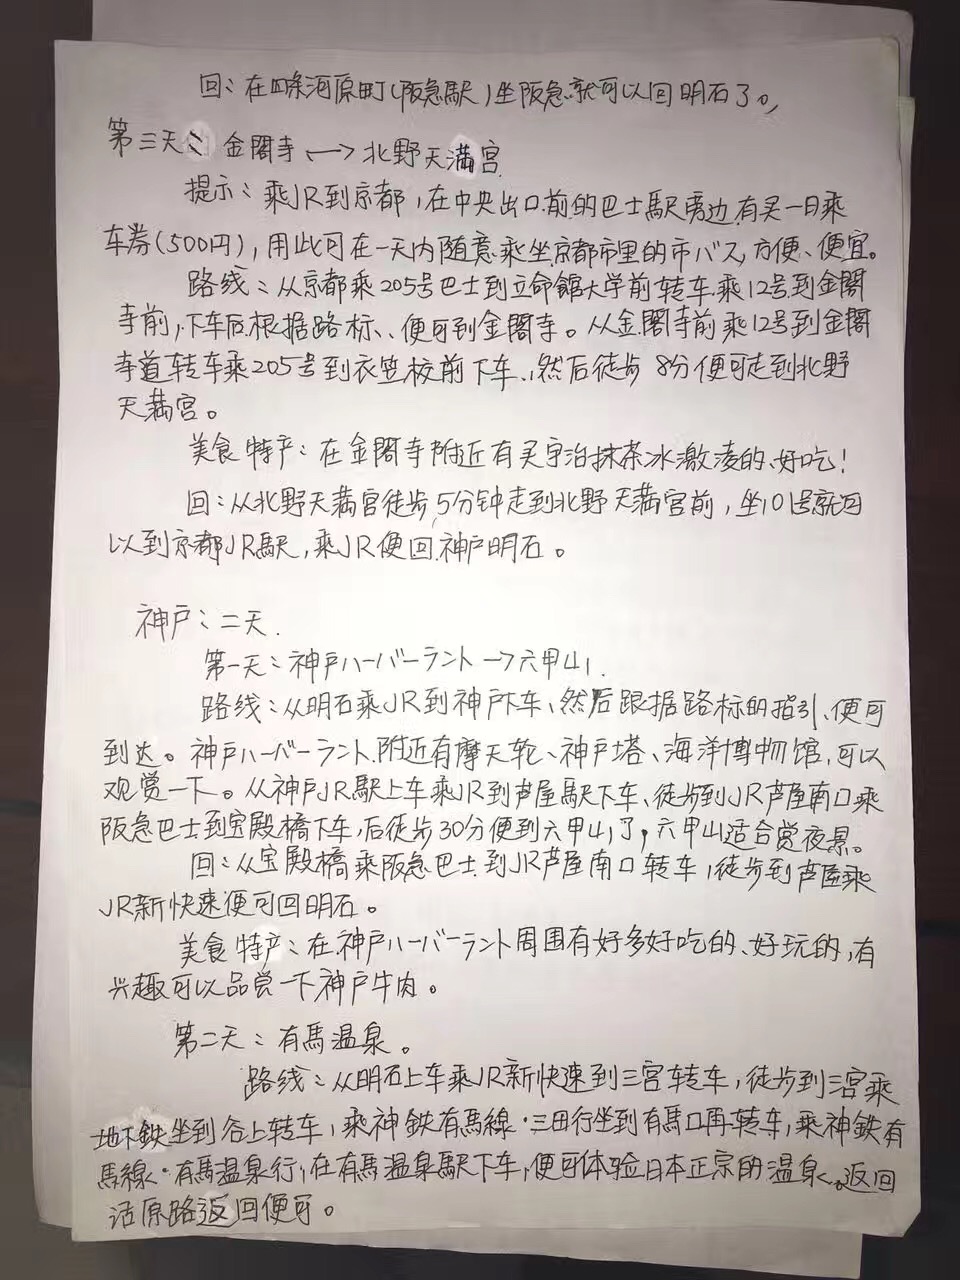 回：在四条河原町(阪急駅)坐阪急就可以回明石了。
第三天： 金閣寺 ←→ 北野天满宫
提示：乘JR到京都，在中央出口前的巴士駅旁边有买一日乘
车券(500円)，用此可在一天内随意乘坐京都市里的市バス，方便、便宜。
路线：从京都乘205号巴士到立命館大学前转车乘12号到金閣
寺前，下车后根据路标、便可到金閣寺。从金閣寺前乘12号到金閣
寺道转车乘205号到衣笠校前下车，然后徒步8分便可走到北野
天满宫。
美食特产：在金閣寺附近有买宇治抹茶冰激凌的、好吃！
回：从北野天满宫徒步5分钟走到北野天满宫前，坐101号就可
以到京都JR駅，乘JR便回神户明石。
神户：二天
第一天：神戸ハーバーラント→六甲山
路线：从明石乘JR到神戸下车、然后跟据路标的指引、便可
到达。神戸ハーバーラント附近有摩天轮、神戸塔、海洋博物馆，可以
观觉一下。从神戸JR駅上车乘JR到芦屋駅下车、徒步到JR芦屋南口乘
阪急巴士到宝殿橋下车，后徒步30分便到六甲山了，六甲山适合觉夜景。
回：从宝殿橋乘阪急巴士到JR芦屋南口转车，徒步到芦屋乘
JR新快速便可回明石。
美食特产：在神戸ハーバーラント周围有好多好吃的、好玩的，有
兴趣可以品尝一下神戸牛肉。
第二天：有馬温泉。
路线：从明石上车乘JR新快速到三宫转车，徒步到三宫乘
地下鉄坐到谷上转车，乘神鉄有馬線・三田行坐到有馬口再转车，乘神鉄有
馬線・有馬温泉行，在有馬温泉駅下车，便可体验日本正宗的温泉。返回
话原路返回便可。